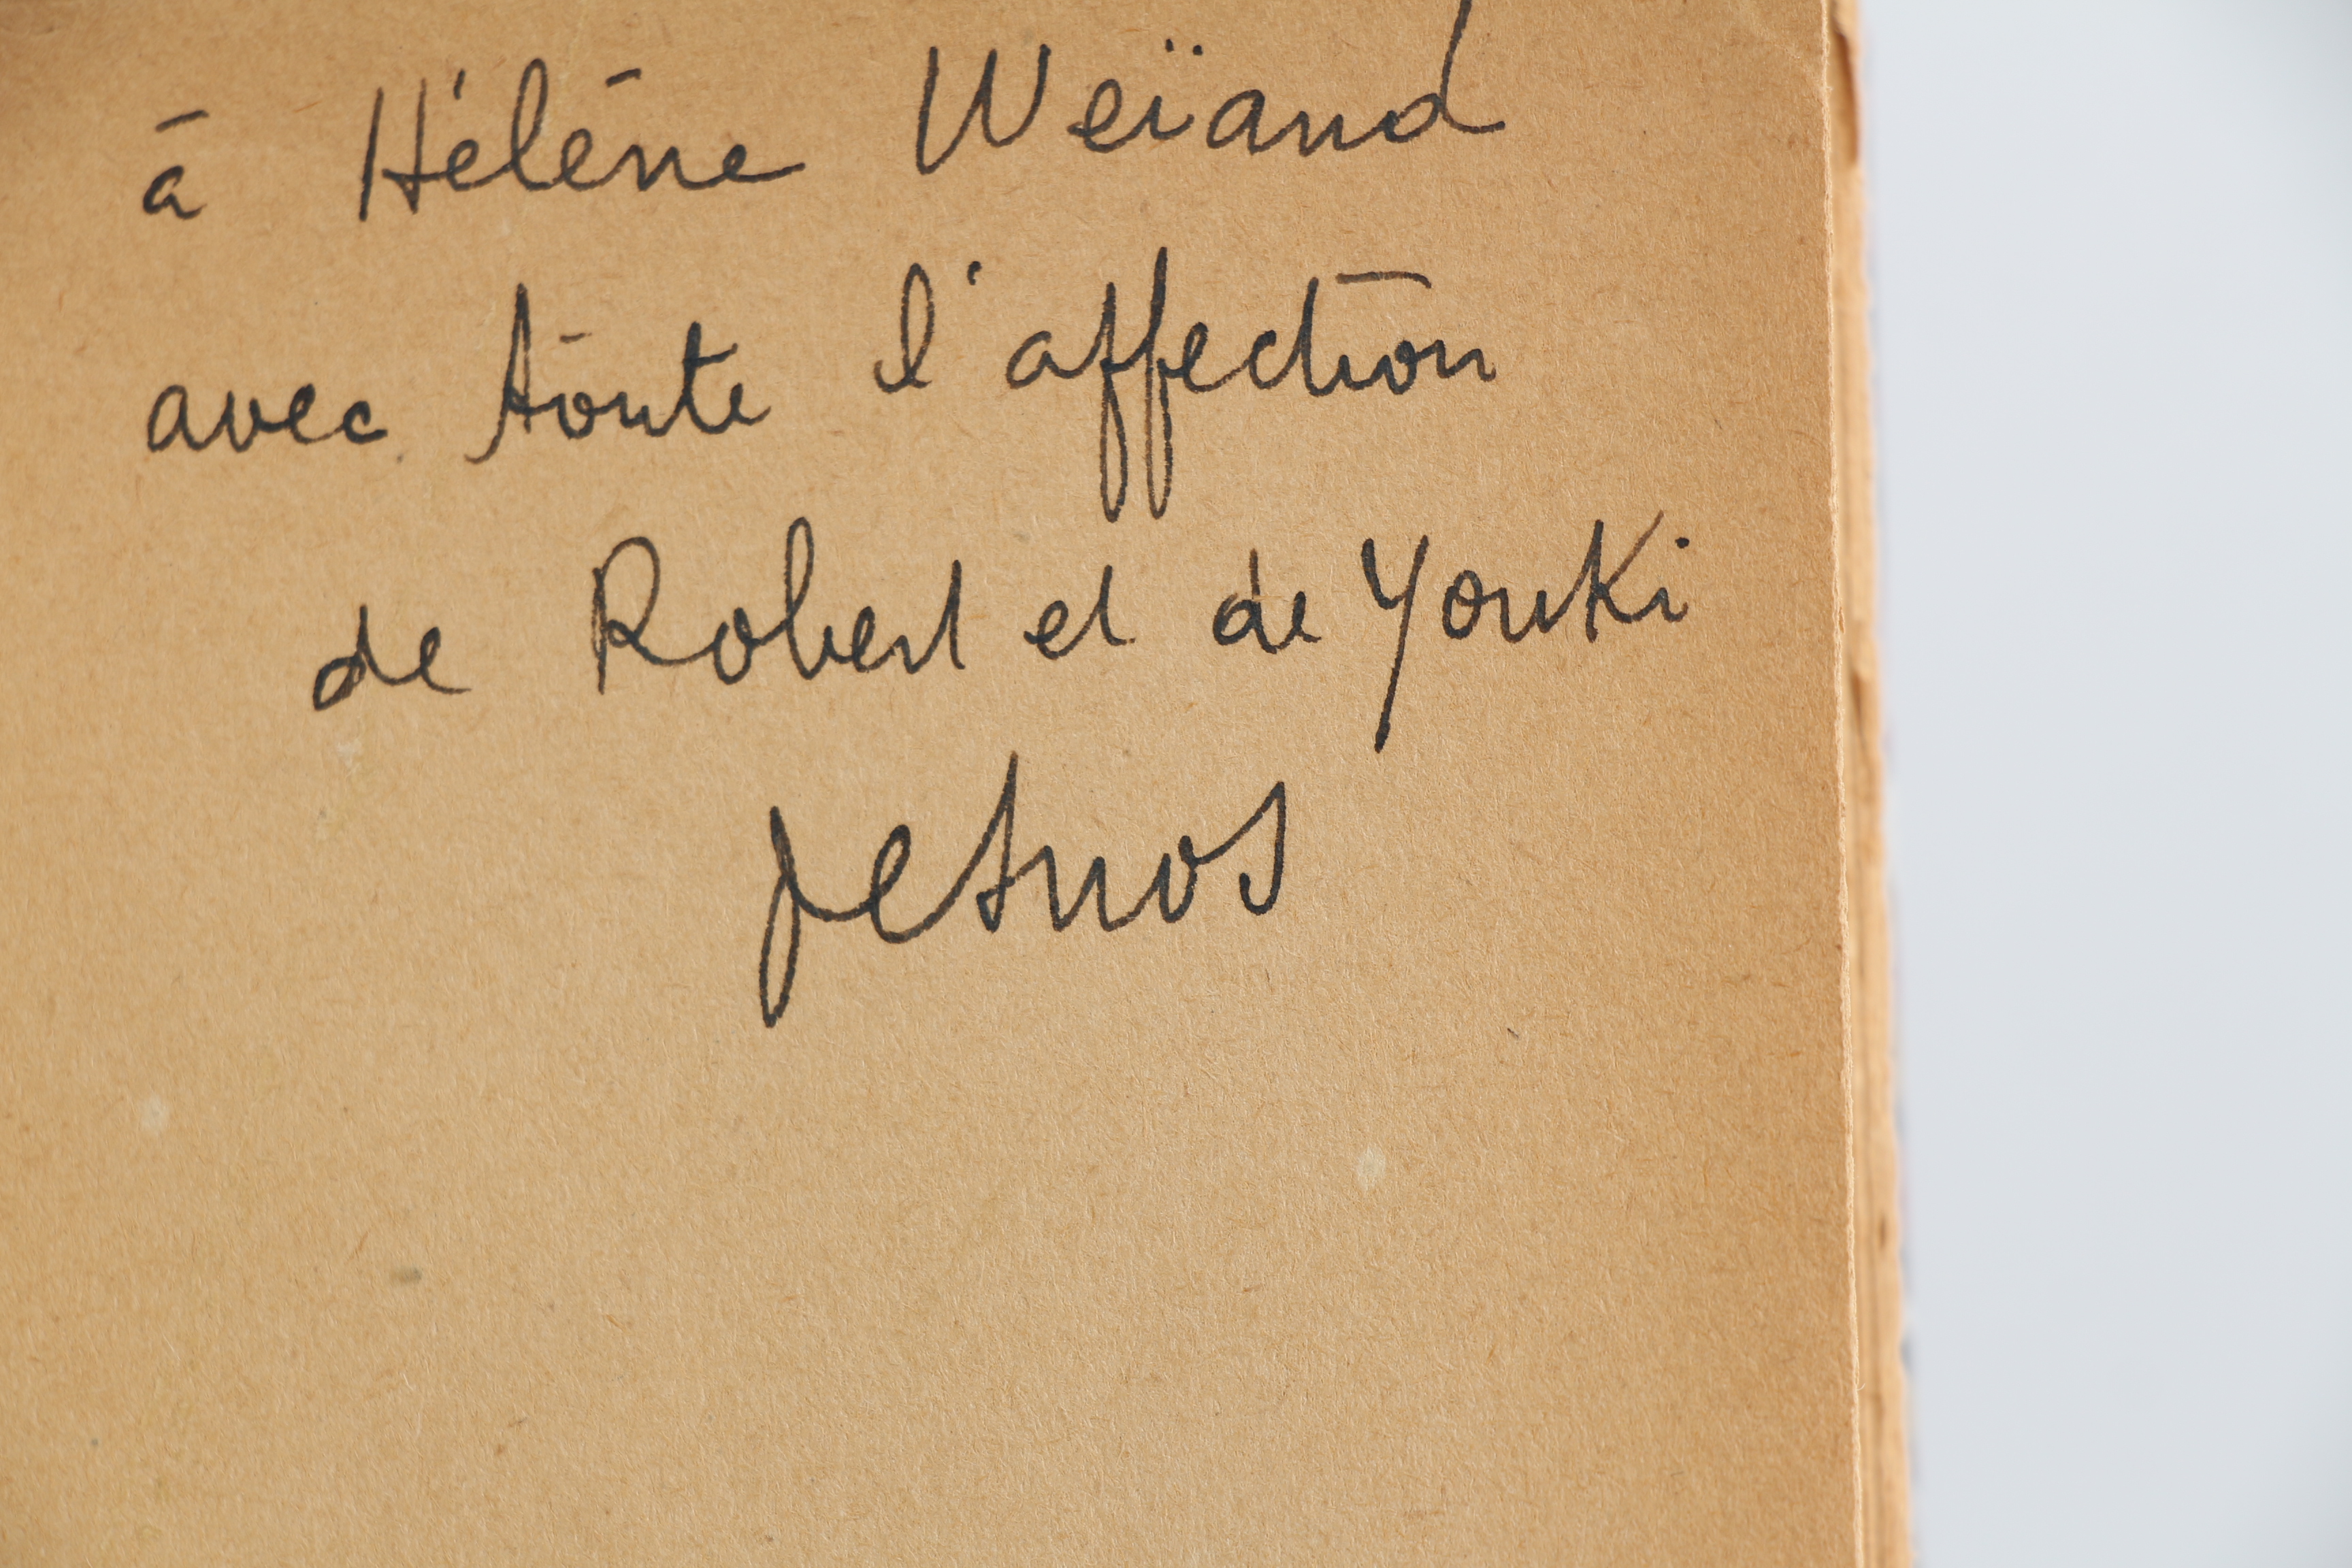 à Hélène Weïand
avec toute l'affection
de Robert et de Youki
Desnos